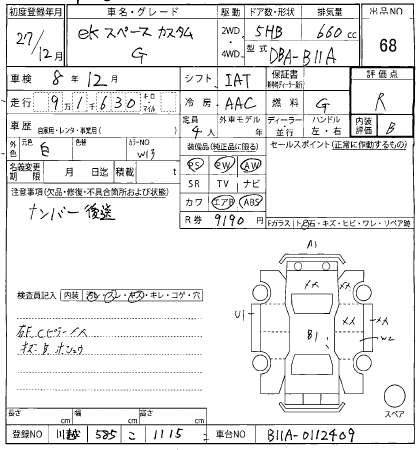 初度登録年月 車名・グレード 駆動 ドア数・形状 排気量 出品NO
27/12月 ekスペース カスタム G 2WD 4WD 5HB 660cc 68
型式 DBA-B11A
車検 8年12月 シフト IAT 保証書 評価点
走行 9万1千630 キロ・マイル 冷房 AAC 燃料 G R
車歴 自家用・レンタ・事業用( ) 定員 4人 外車モデル 年 ディーラー・並行 ハンドル 左・右 内装評価 B
外色 元色 白 色替 カラーNO W13 装備品(純正品に限る) セールスポイント(正常に作動するもの)
名義変更期限 月 日迄 積載 t PS PW AW
注意事項(欠品・修復・不具合箇所および状態) SR TV ナビ
ナンバー後送 カワ エアB ABS
R券 9190円 Fガラス トビ石・キズ・ヒビ・ワレ・リペア跡
A1
検査員記入 内装 汚レ・スレ・キズ・キレ・コゲ・穴
U1 メメ メメ メメ
B1 W2
右F Cピラーメメ
スペア
長さ cm 幅 cm 高さ cm
登録NO 川越 585 こ 1115 車台NO B11A-0112409